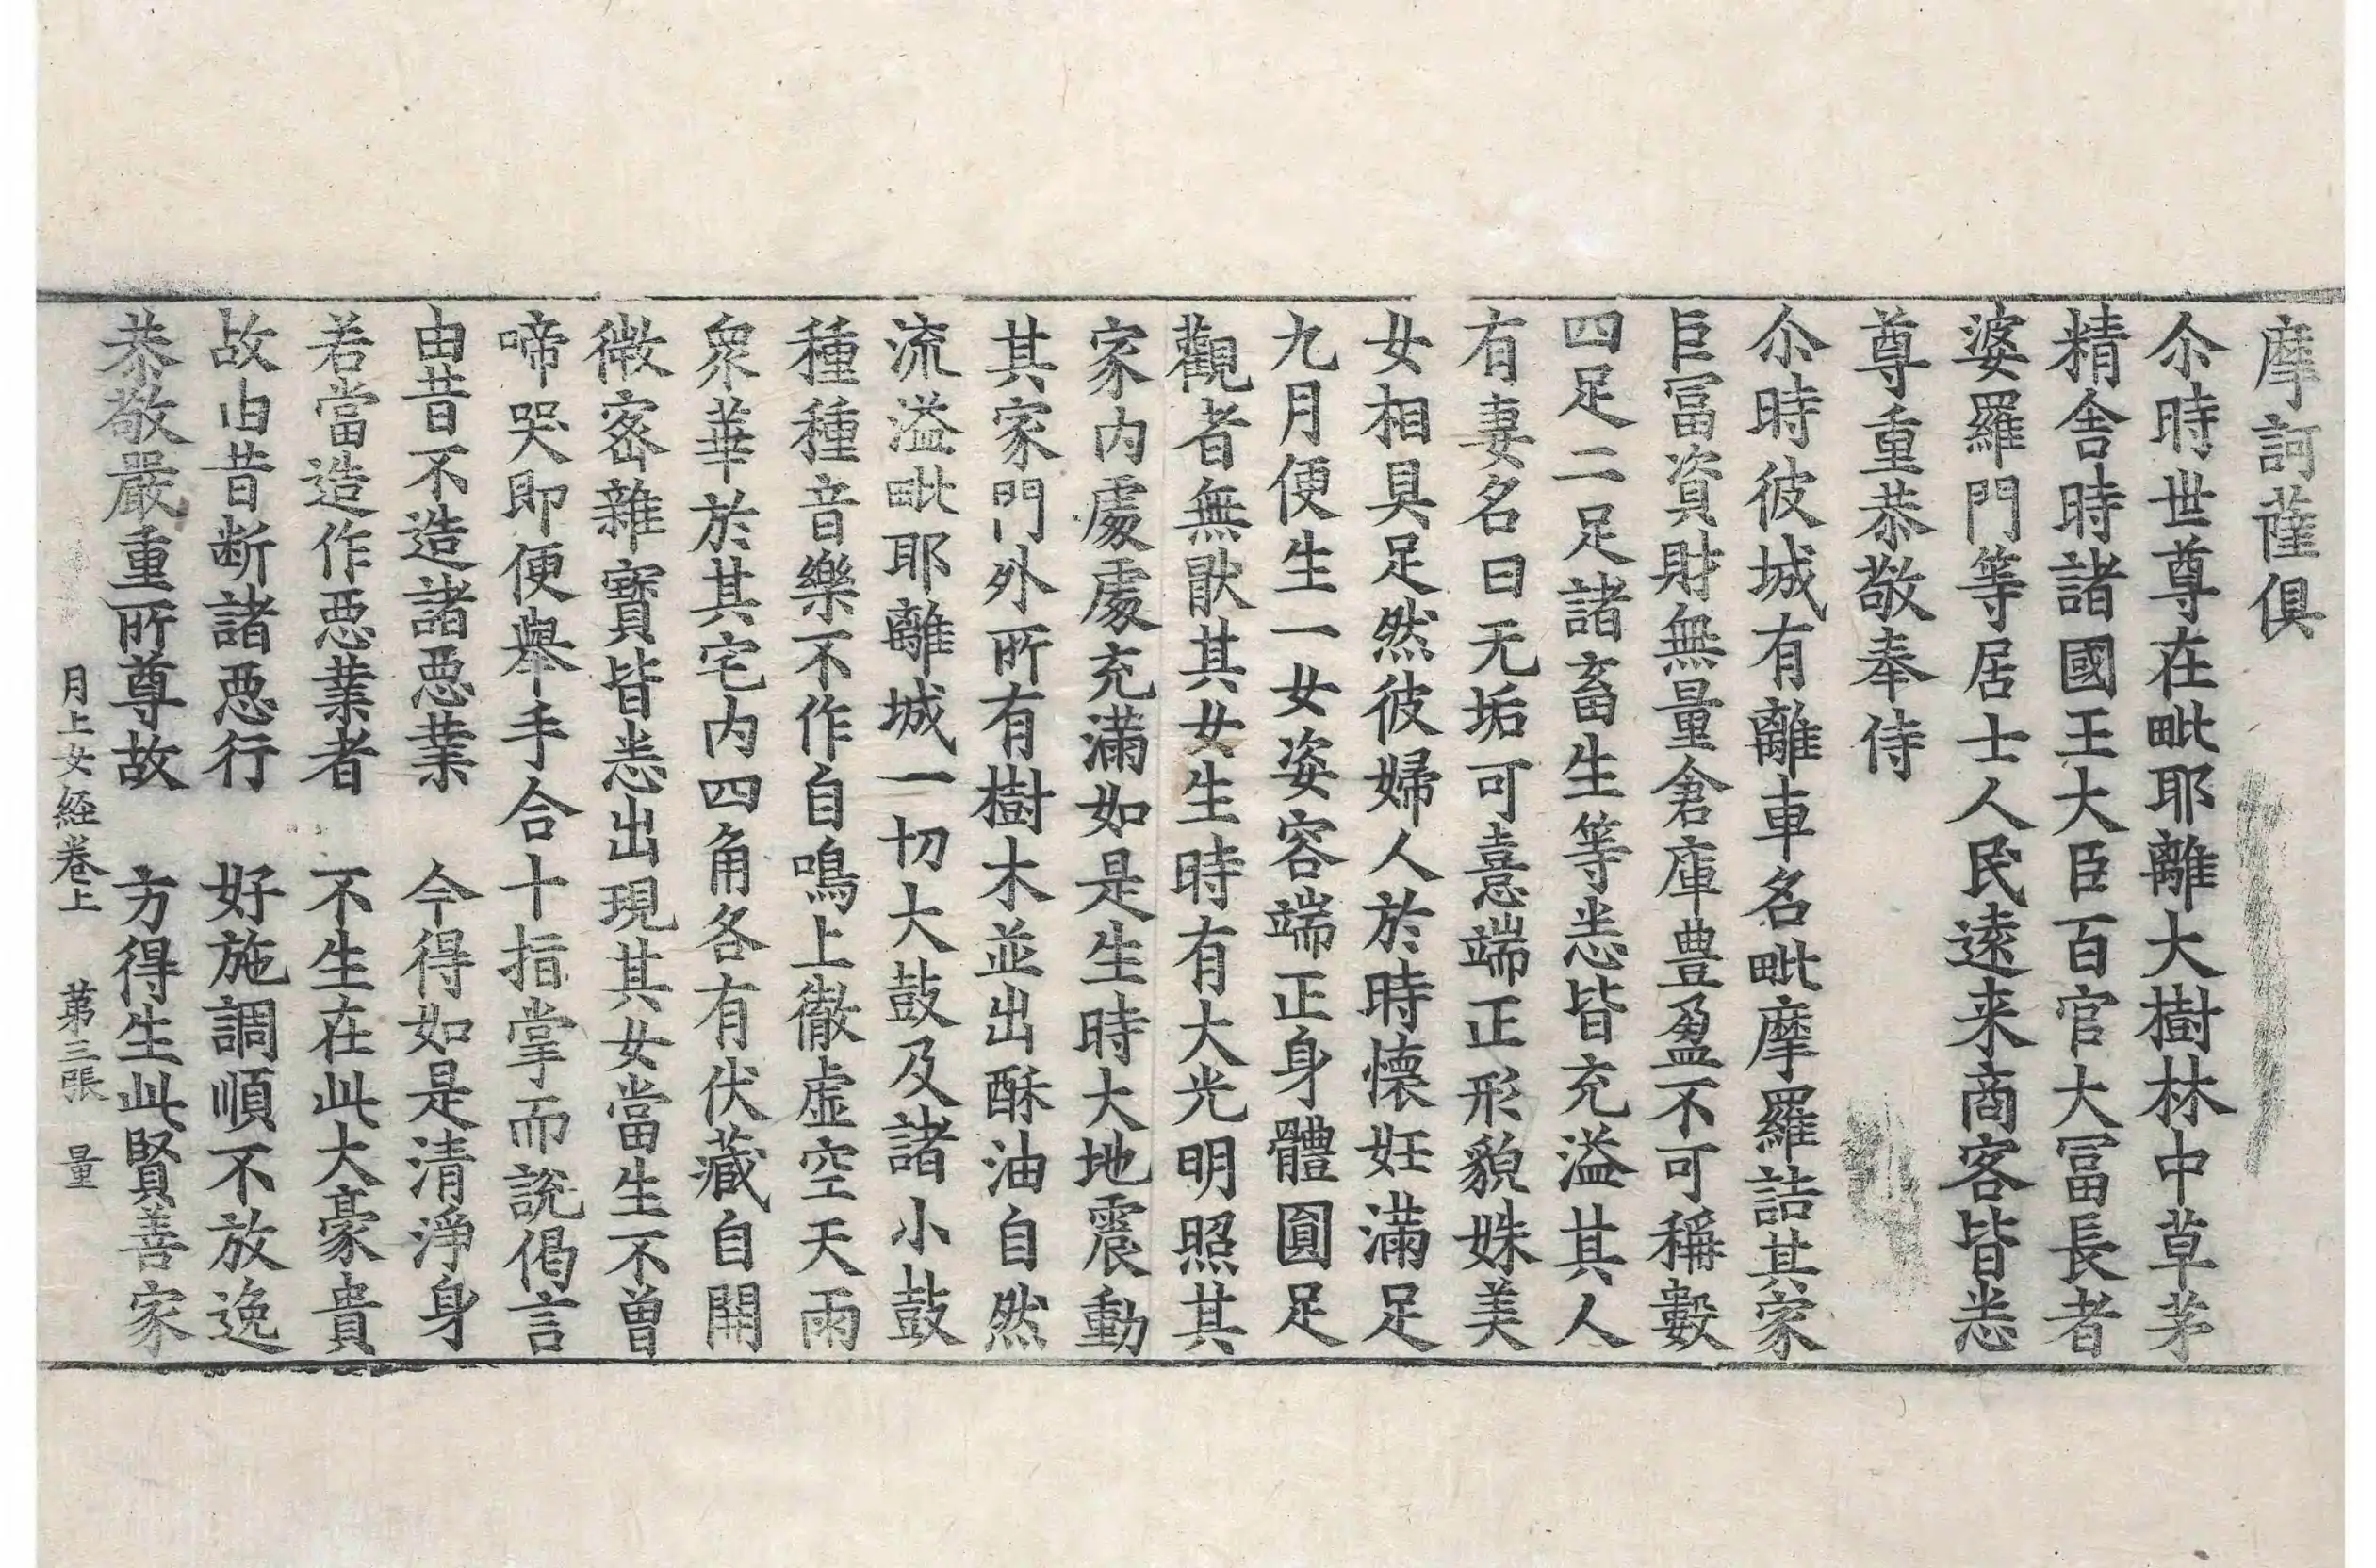 摩訶薩俱
尒時世尊在毗耶離大樹林中草茅
精舍時諸國王大臣百官大冨長者
婆羅門等居士人民遠来商客皆悉
尊重恭敬奉侍
尒時彼城有離車名毗摩羅詰其家
巨冨資財無量倉庫豊盈不可稱數
四足二足諸畜生等悉皆充溢其人
有妻名曰无垢可憙端正形貌姝美
女相具足然彼婦人於時懷妊滿足
九月便生一女姿容端正身體圓足
觀者無猒其女生時有大光明照其
家内處處充滿如是生時大地震動
其家門外所有樹木並出酥油自然
流溢毗耶離城一切大鼓及諸小鼓
種種音樂不作自鳴上徹虛空天雨
衆華於其宅内四角各有伏藏自開
微密雜寶皆悉出現其女當生不曾
啼哭即便舉手合十指掌而說偈言
由昔不造諸惡業　今得如是清淨身
若當造作惡業者　不生在此大豪貴
故由昔断諸惡行　好施調順不放逸
恭敬嚴重所尊故　方得生此賢善家
月上女経卷上　第三張　量